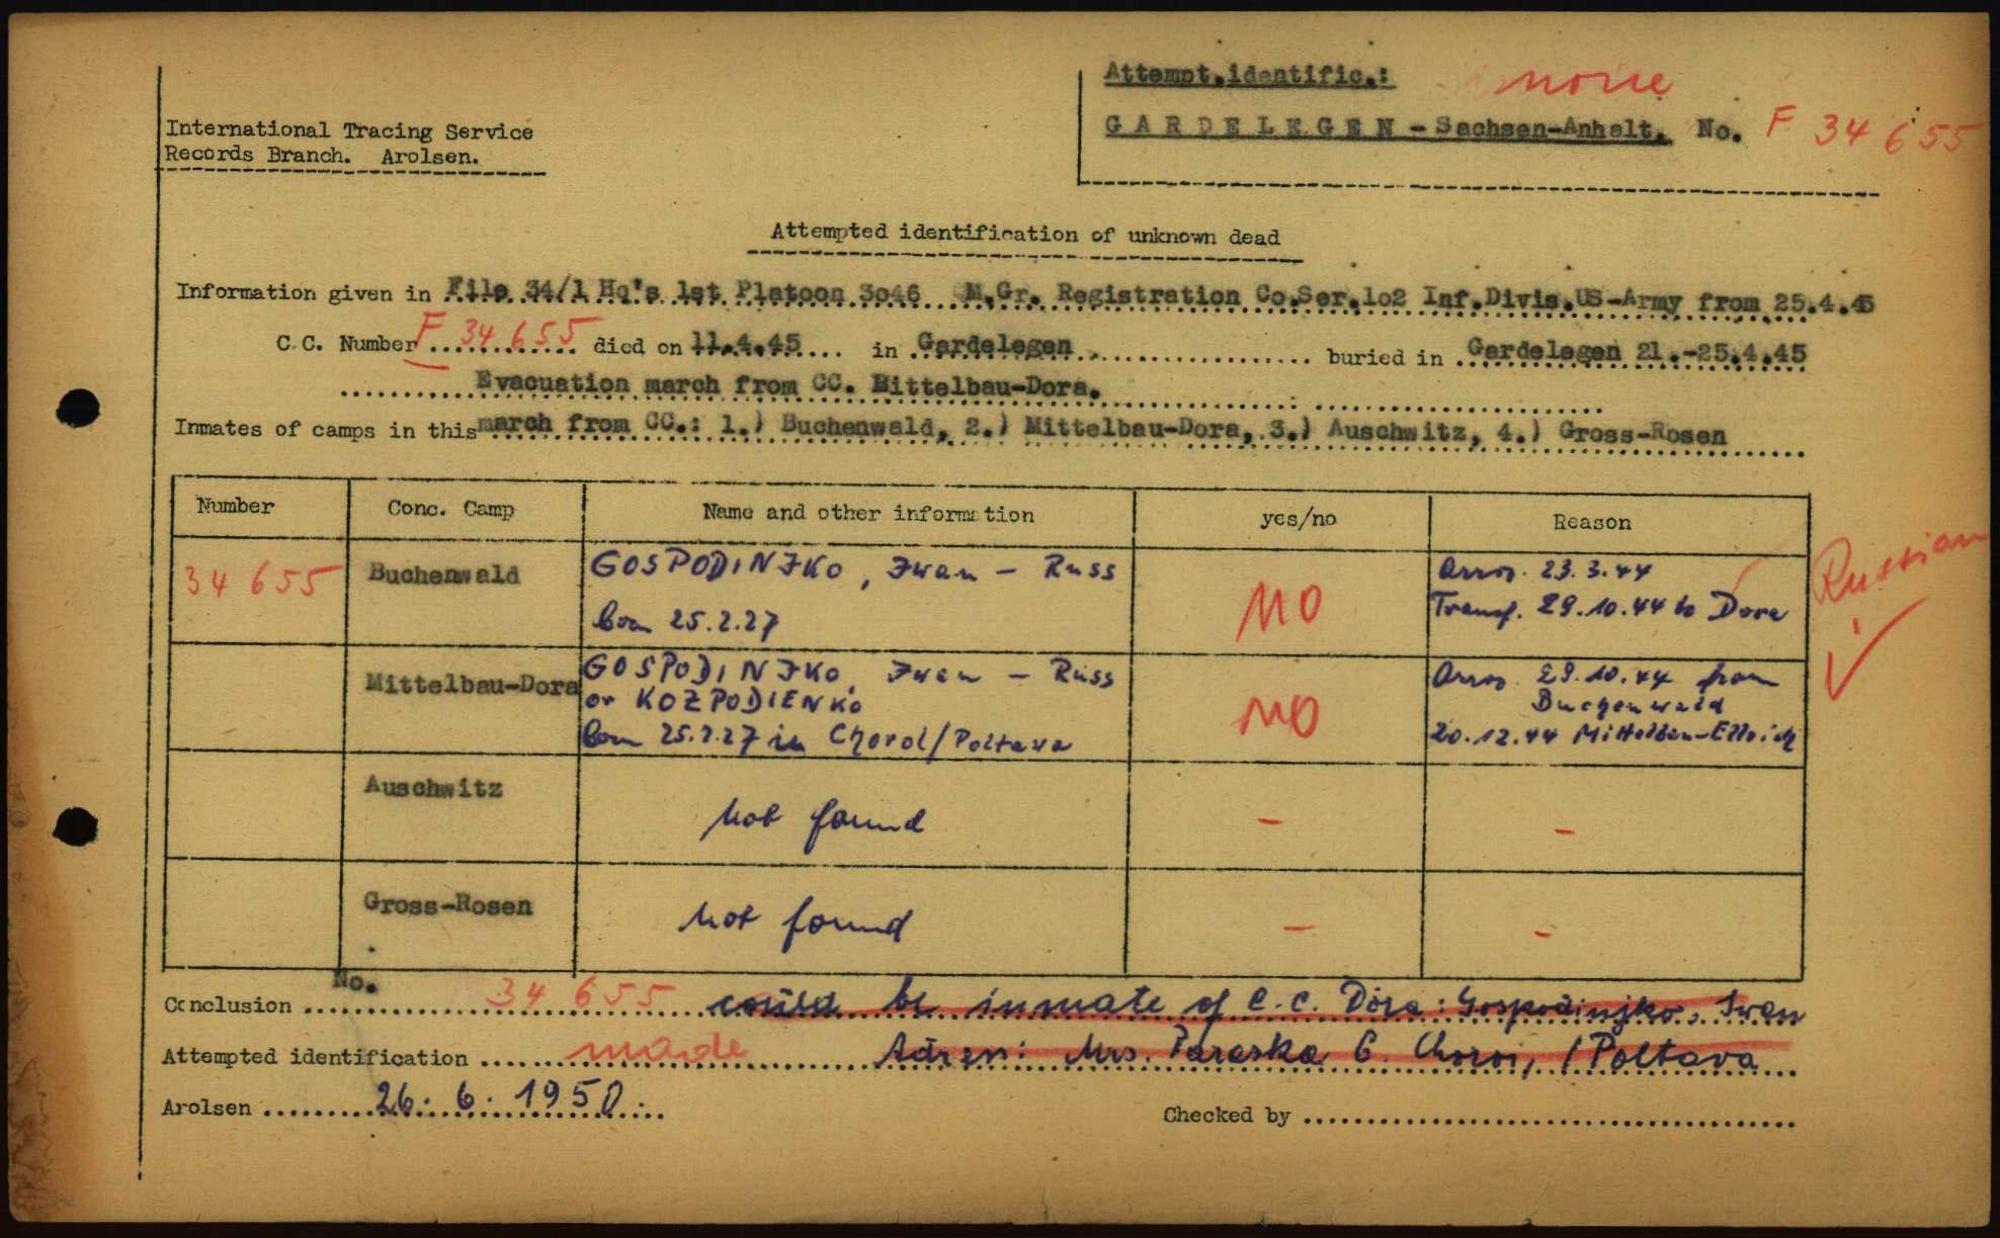 Attempt.identific.: none
International Tracing Service
Records Branch. Arolsen.
GARDELEGEN - Sachsen-Anhalt. No. F 34 655
Attempted identification of unknown dead
Information given in File 34/1 Hq's 1st Platoon 3o46 M.Gr. Registration Co.Ser.1o2 Inf.Divis.US-Army from 25.4.45
C.C. Number F 34 655 died on 11.4.45 in Gardelegen buried in Gardelegen 21.-25.4.45
Evacuation march from CC. Mittelbau-Dora.
Inmates of camps in this march from CC.: 1.) Buchenwald, 2.) Mittelbau-Dora, 3.) Auschwitz, 4.) Gross-Rosen
Number Conc. Camp Name and other information yes/no Reason
34 655 Buchenwald GOSPODINJKO, Iwan - Russ NO Arrv. 23.3.44 Russian
born 25.2.27 Transf. 29.10.44 to Dora
Mittelbau-Dora GOSPODINJKO, Iwan - Russ NO Arrv. 29.10.44 from
or KOZPODIENKO Buchenwald
born 25.2.27 in Chorol/Poltava 20.12.44 Mittelbau-Ellrich
Auschwitz not found - -
Gross-Rosen not found - -
Conclusion No. 34 655 could be inmate of C.C. Dora: Gospodinjko, Iwan
Attempted identification made Adress: Mrs. Paraska G. /Poltava
Arolsen 26.6.1950 Checked by